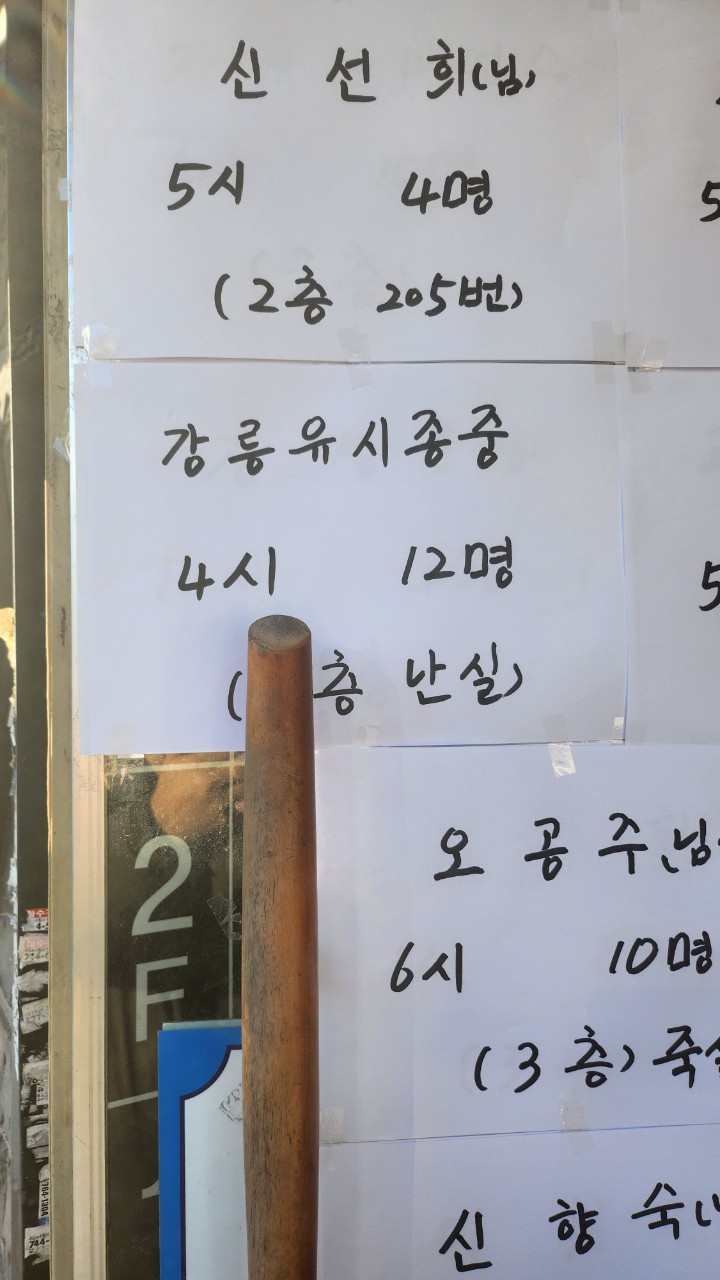 신 선 희(님)
5시 4명
(2층 205번)
강릉유시종중
4시 12명
( 층 난실)
오 공 주(님
6시 10명
(3층)죽실
신 향 숙(
5
5
2
F